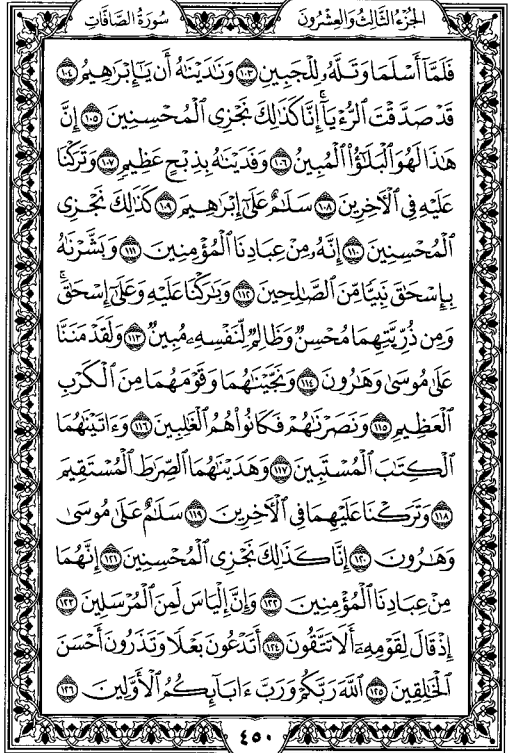 الجزء الثالث والعشرون سورة الصافات
فَلَمَّآ أَسۡلَمَا وَتَلَّهُۥ لِلۡجَبِينِ ١٠٣ وَنَٰدَيۡنَٰهُ أَن يَٰٓإِبۡرَٰهِيمُ ١٠٤
قَدۡ صَدَّقۡتَ ٱلرُّءۡيَآۚ إِنَّا كَذَٰلِكَ نَجۡزِي ٱلۡمُحۡسِنِينَ ١٠٥ إِنَّ
هَٰذَا لَهُوَ ٱلۡبَلَٰٓؤُاْ ٱلۡمُبِينُ ١٠٦ وَفَدَيۡنَٰهُ بِذِبۡحٍ عَظِيمٖ ١٠٧ وَتَرَكۡنَا
عَلَيۡهِ فِي ٱلۡأٓخِرِينَ ١٠٨ سَلَٰمٌ عَلَىٰٓ إِبۡرَٰهِيمَ ١٠٩ كَذَٰلِكَ نَجۡزِي
ٱلۡمُحۡسِنِينَ ١١٠ إِنَّهُۥ مِنۡ عِبَادِنَا ٱلۡمُؤۡمِنِينَ ١١١ وَبَشَّرۡنَٰهُ
بِإِسۡحَٰقَ نَبِيّٗا مِّنَ ٱلصَّٰلِحِينَ ١١٢ وَبَٰرَكۡنَا عَلَيۡهِ وَعَلَىٰٓ إِسۡحَٰقَۚ
وَمِن ذُرِّيَّتِهِمَا مُحۡسِنٞ وَظَالِمٞ لِّنَفۡسِهِۦ مُبِينٞ ١١٣ وَلَقَدۡ مَنَنَّا
عَلَىٰ مُوسَىٰ وَهَٰرُونَ ١١٤ وَنَجَّيۡنَٰهُمَا وَقَوۡمَهُمَا مِنَ ٱلۡكَرۡبِ
ٱلۡعَظِيمِ ١١٥ وَنَصَرۡنَٰهُمۡ فَكَانُواْ هُمُ ٱلۡغَٰلِبِينَ ١١٦ وَءَاتَيۡنَٰهُمَا
ٱلۡكِتَٰبَ ٱلۡمُسۡتَبِينَ ١١٧ وَهَدَيۡنَٰهُمَا ٱلصِّرَٰطَ ٱلۡمُسۡتَقِيمَ
١١٨ وَتَرَكۡنَا عَلَيۡهِمَا فِي ٱلۡأٓخِرِينَ ١١٩ سَلَٰمٌ عَلَىٰ مُوسَىٰ
وَهَٰرُونَ ١٢٠ إِنَّا كَذَٰلِكَ نَجۡزِي ٱلۡمُحۡسِنِينَ ١٢١ إِنَّهُمَا
مِنۡ عِبَادِنَا ٱلۡمُؤۡمِنِينَ ١٢٢ وَإِنَّ إِلۡيَاسَ لَمِنَ ٱلۡمُرۡسَلِينَ ١٢٣
إِذۡ قَالَ لِقَوۡمِهِۦٓ أَلَا تَتَّقُونَ ١٢٤ أَتَدۡعُونَ بَعۡلٗا وَتَذَرُونَ أَحۡسَنَ
ٱلۡخَٰلِقِينَ ١٢٥ ٱللَّهَ رَبَّكُمۡ وَرَبَّ ءَابَآئِكُمُ ٱلۡأَوَّلِينَ ١٢٦
٤٥٠